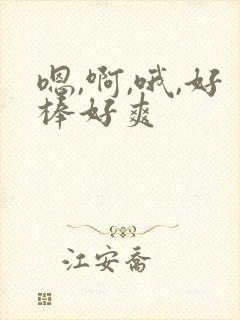 嗯,啊,哦,好
棒好爽
江安乔